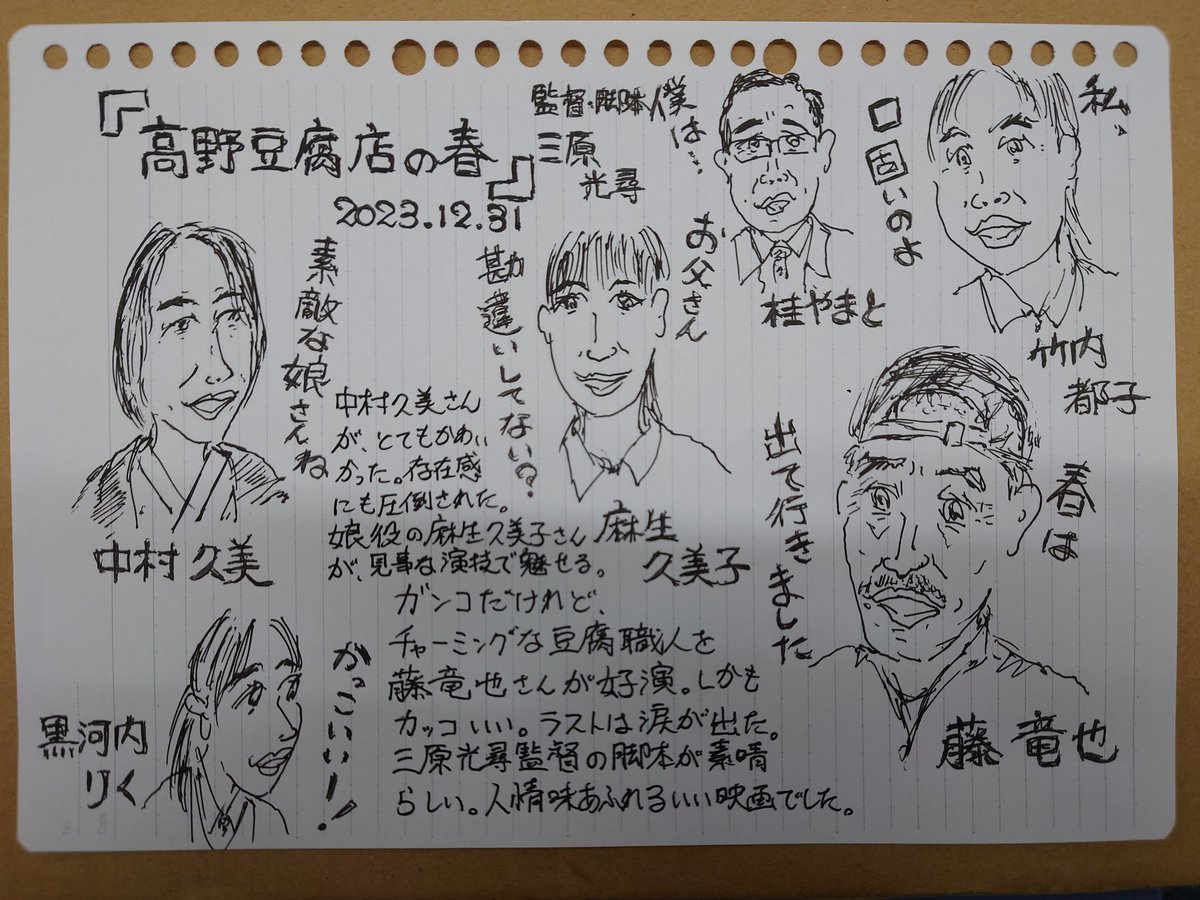 『高野豆腐店の春』
2023.12.31
監督・脚本
三原
光尋
僕は…
桂やまと
私、
口固いのよ
竹内
都子
素敵な娘さんね
中村久美
お父さん
勘違いしてない?
麻生
久美子
春は
出て行きました
藤竜也
中村久美さん
が、とてもかわい
かった。存在感
にも圧倒された。
娘役の麻生久美子さん
が、見事な演技で魅せる。
ガンコだけれど、
チャーミングな豆腐職人を
藤竜也さんが好演。しかも
カッコいい。ラストは涙が出た。
三原光尋監督の脚本が素晴
らしい。人情味あふれるいい映画でした。
かっこいいー!
黒河内
りく